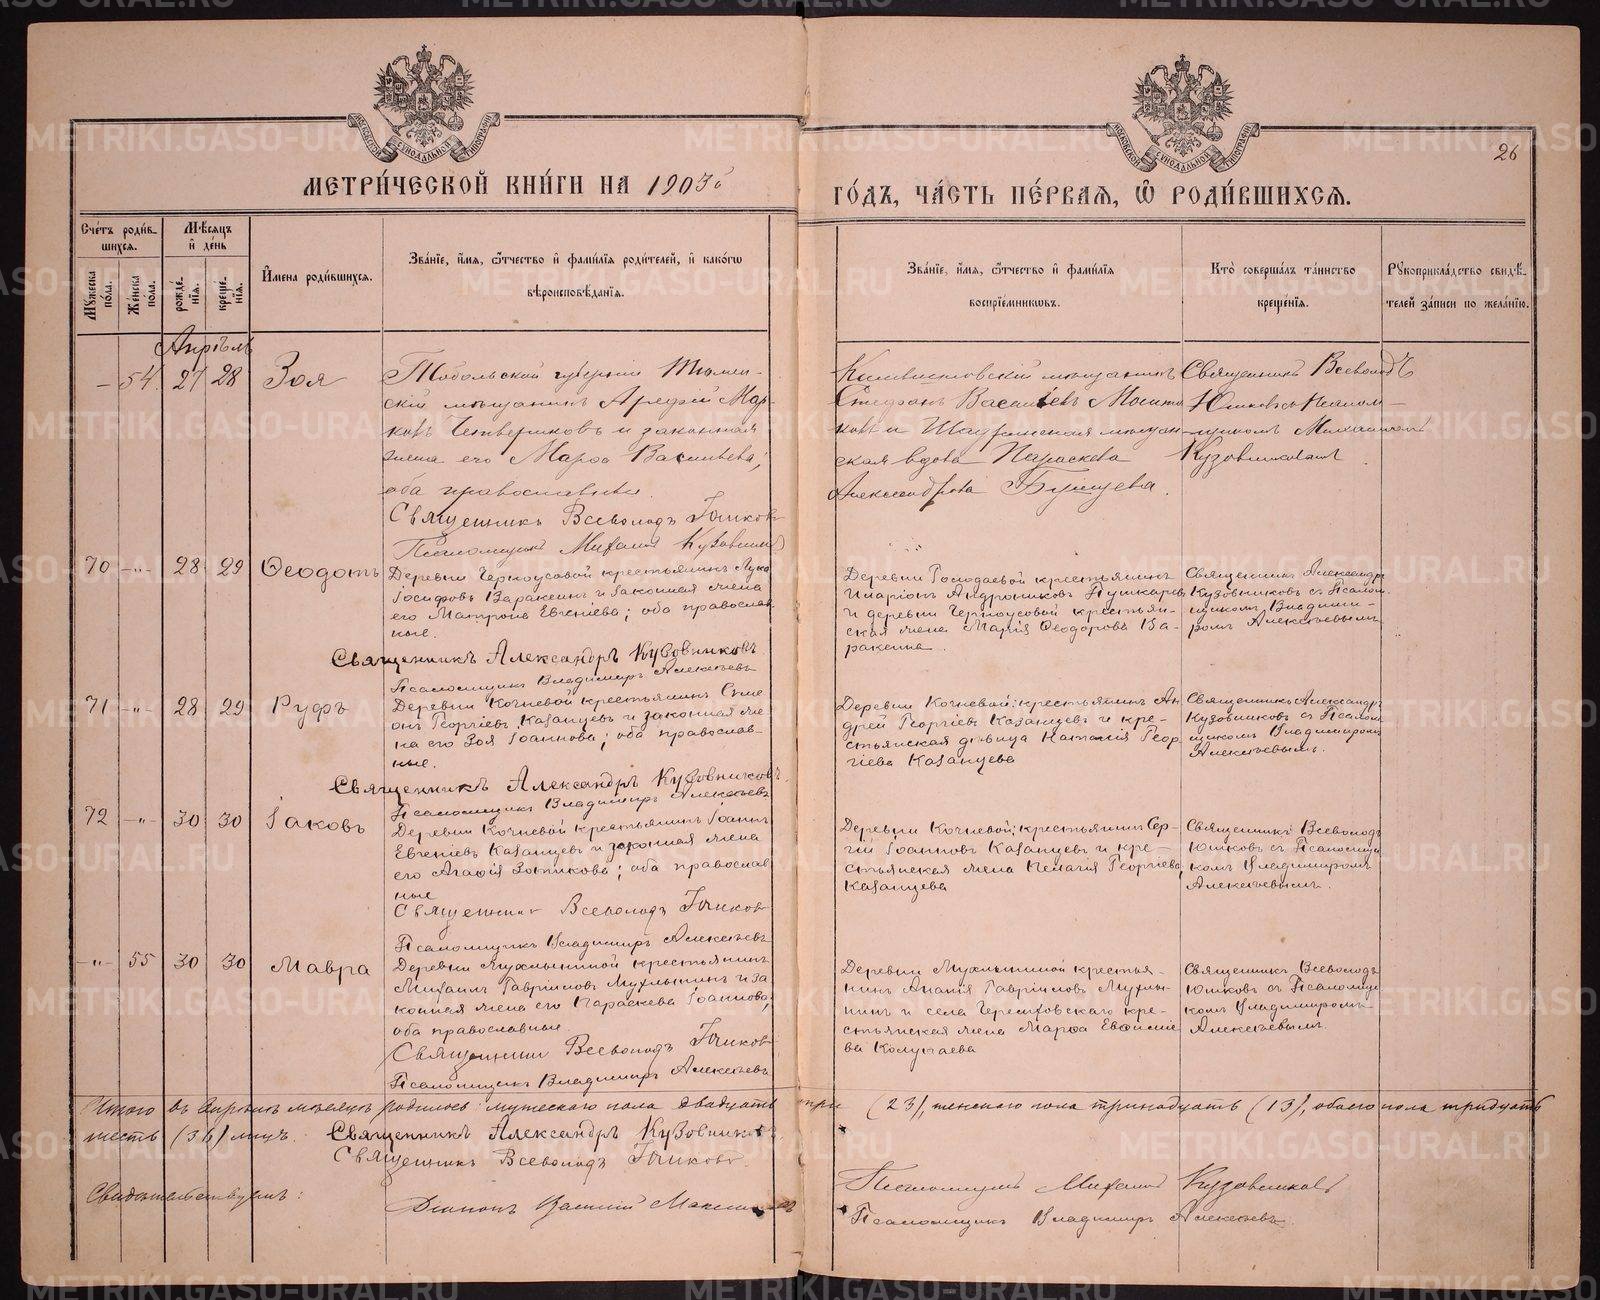 МЕТРИ́ЧЕСКОЙ КНИ́ГИ НА 1903й
ГО́ДЪ, ЧА́СТЬ ПЕ́РВАЯ, Ѿ РОДИ́ВШИХСЯ.
26
Сче́тъ роди́в-
шихся.
Мѣ́сяцъ
и де́нь
Му́жеска по́ла.
Же́нска по́ла.
рожде́-
нїя.
креще́-
нїя.
И́мена роди́вшихся.
Зва́нїе, и́мя, ѻ́тчество и фами́лїя роди́телей, и како́гѡ
вѣроисповѣ́данїя.
Зва́нїе, и́мя, ѻ́тчество и фами́лїя
воспрїе́мниковъ.
Кто̀ соверша́лъ та́инство
креще́нїя.
Рукоприкла́дство свидѣ́-
телей за́писи по жела́нїю.
Апрѣль
- 54. 27 28 Зоя
Тобольской губерніи Тюмен-
скій мѣщанинъ Арефій Мар-
ковъ Четвериковъ и законная
жена его Марѳа Васильева;
оба православные.
Священникъ Всеволодъ Юшковъ
Псаломщикъ Михаилъ Кузовниковъ
Стефанъ Васильевъ
и Шадринская мѣщан-
ская вдова Параскева
Александрова
Священникъ Всеволодъ
Юшковъ съ псалом-
щикомъ Михаиломъ
Кузовниковымъ
70 -"- 28 29 Ѳеодотъ
Деревни Черноусовой крестьянинъ Лука
Іосифовъ Варакинъ и законная жена
его Матрона Евгеніева; оба православ-
ные.
Священникъ Александръ Кузовниковъ
Псаломщикъ Владимиръ Алексѣевъ
Деревни Голодаевой крестьянинъ
Иларіонъ Андрониковъ Пушкаревъ
и деревни Черноусовой крестьян-
ская жена Марія Ѳеодорова Ва-
ракина.
Священникъ Александръ
Кузовниковъ съ Псалом-
щикомъ Владими-
ромъ Алексѣевымъ
71 -"- 28 29 Руфъ
Деревни Кочневой крестьянинъ Симе-
онъ Георгіевъ Казанцевъ и законная же-
на его Зоя Іоаннова; оба православ-
ные.
Священникъ Александръ Кузовниковъ.
Псаломщикъ Владимиръ Алексѣевъ
Деревни Кочневой: крестьянинъ Ан-
дрей Георгіевъ Казанцевъ и кре-
стьянская дѣвица Наталія Геор-
гіева Казанцева
Священникъ Александръ
Кузовниковъ съ Псалом-
щикомъ Владимиромъ
Алексѣевымъ.
72 -"- 30 30 Іаковъ
Деревни Кочневой крестьянинъ Іоаннъ
Евгеніевъ Казанцевъ и законная жена
его Агафія Зотикова; оба православ-
ные
Священникъ Всеволодъ Юшковъ
Псаломщикъ Владимиръ Алексѣевъ
Деревни Кочневой: крестьянинъ Сер-
гій Іоанновъ Казанцевъ и кре-
стьянская жена Пелагія Георгіева
Казанцева
Священникъ Всеволодъ
Юшковъ съ Псаломщи-
комъ Владимиромъ
Алексѣевымъ.
-"- 55 30 30 Мавра
Деревни Мухлыниной крестьянинъ
Михаилъ Гавріиловъ Мухлынинъ и за-
конная жена его Параскева Іоаннова;
оба православные.
Священникъ Всеволодъ Юшковъ
Псаломщикъ Владимиръ Алексѣевъ
Деревни Мухлыниной крестья-
нинъ Ананія Гавріиловъ Мухлы-
нинъ и села кре-
стьянская жена Марѳа Евѳиміе-
ва
Священникъ Всеволодъ
Юшковъ съ Псаломщи-
комъ Владимиромъ
Алексѣевымъ.
Итого въ Апрѣлѣ мѣсяцѣ родилось: мужескаго пола двадцать три (23), женскаго пола тринадцать (13), обоего пола тридцать
шесть (36) лицъ.
Священникъ Александръ Кузовниковъ.
Священникъ Всеволодъ Юшковъ.
Свидѣтельствуемъ:
Діаконъ Василій
Псаломщикъ Михаилъ Кузовниковъ
Псаломщикъ Владимиръ Алексѣевъ
METRIKI.GASO-URAL.RU